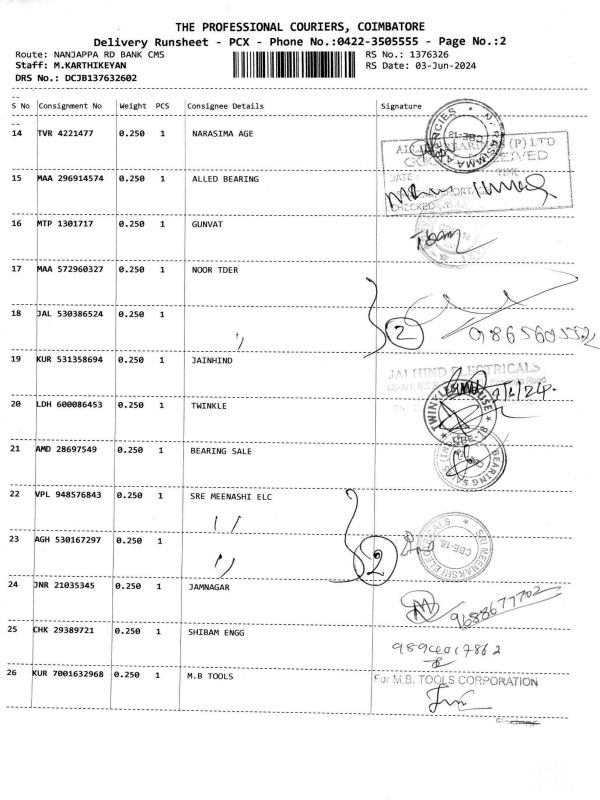 THE PROFESSIONAL COURIERS, COIMBATORE
Delivery Runsheet - PCX - Phone No.:0422-3505555 - Page No.:2
Route: NANJAPPA RD BANK CMS RS No.: 1376326
Staff: M.KARTHIKEYAN RS Date: 03-Jun-2024
DRS No.: DCJB137632602
S No Consignment No Weight PCS Consignee Details Signature
14 TVR 4221477 0.250 1 NARASIMA AGE
15 MAA 296914574 0.250 1 ALLED BEARING
16 MTP 1301717 0.250 1 GUNVAT
17 MAA 572960327 0.250 1 NOOR TDER
18 JAL 530386524 0.250 1
2
19 KUR 531358694 0.250 1 JAINHIND
JAI HIND ELECTRICALS
20 LDH 600086453 0.250 1 TWINKLE
CBE-18
21 AMD 28697549 0.250 1 BEARING SALE
22 VPL 948576843 0.250 1 SRE MEENASHI ELC
SRI MEENAKSHI ELECTRICALS
CBE-18
23 AGH 530167297 0.250 1
2
24 JNR 21035345 0.250 1 JAMNAGAR
9688677702
25 CHK 29389721 0.250 1 SHIBAM ENGG
26 KUR 7001632968 0.250 1 M.B TOOLS
For M.B. TOOLS CORPORATION